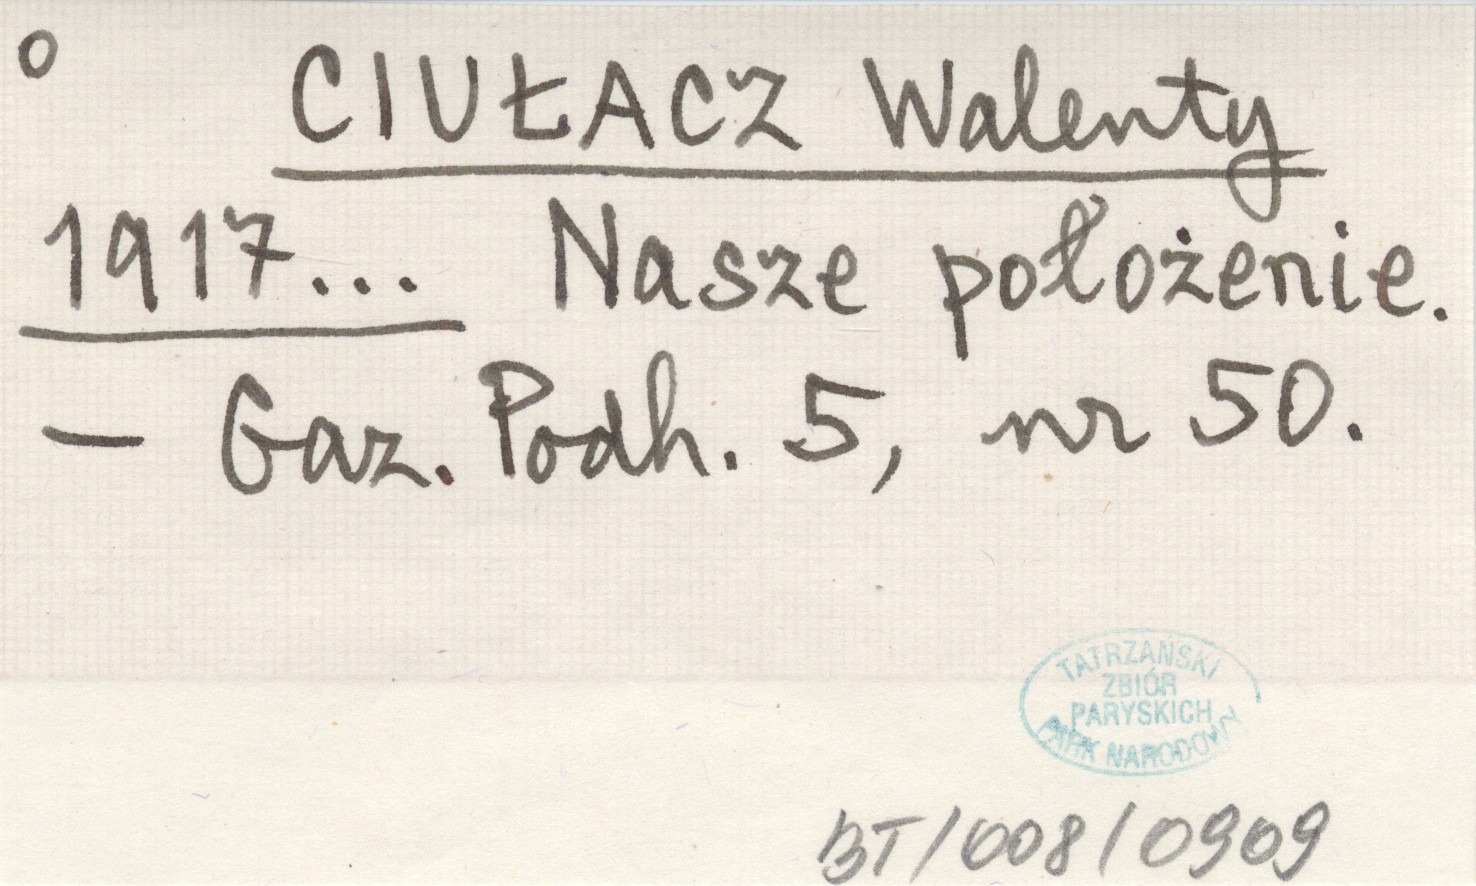 o
CIUŁACZ Walenty
1917... Nasze położenie.
— Gaz. Podh. 5, nr 50.
TATRZAŃSKI
ZBIÓR
PARYSKICH
PARK NARODOWY
BT/008/0909